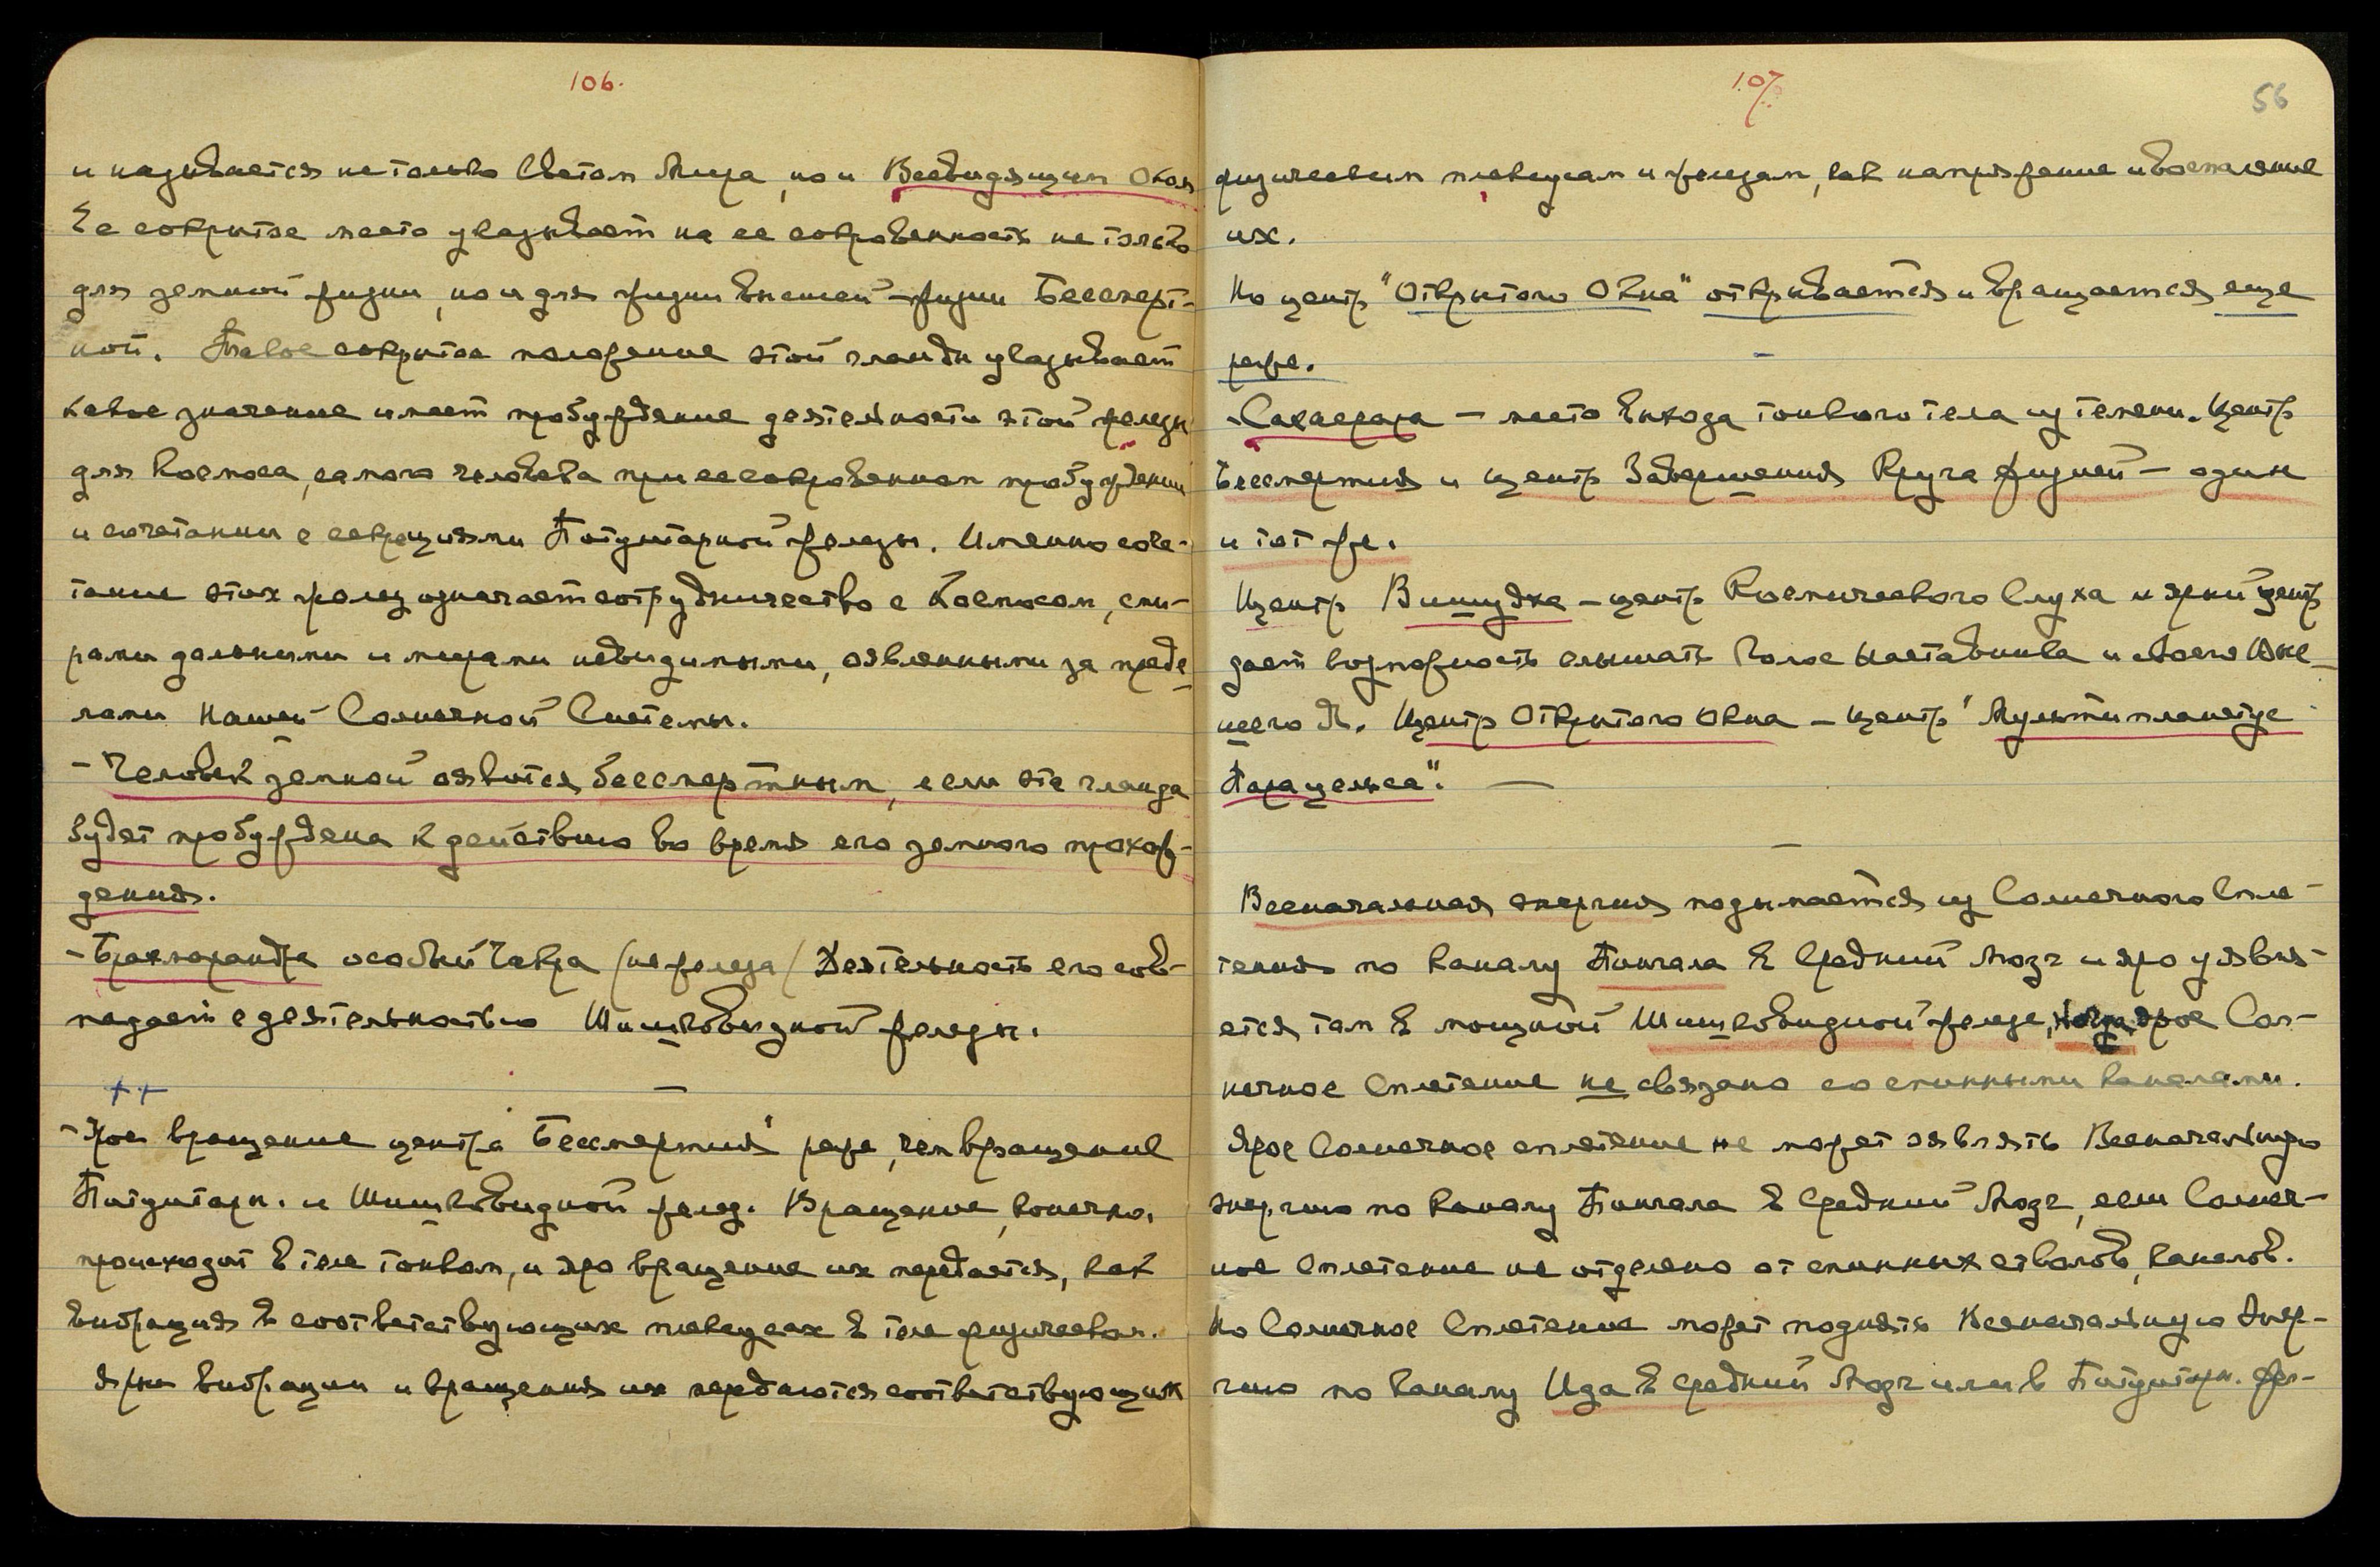 106.
и называется не только Светом Мира, но и Всевидящим Оком
Ее сокрытое место указывает на ее сокровенность не только
для земной жизни, но и для жизни высшей – жизни Бессмерт-
ной. Такое сокрытое положение этой гланды указывает
какое значение имеет пробуждение деятельности этой железы
для Космоса, самого человека при ее сокровенном пробуждении
и сочетании с секрециями Питуитарной железы. Именно соче-
тание этих желез означает сотрудничество с Космосом, с ми-
рами дальними и мирами невидимыми, явленными за преде-
лами Нашей Солнечной Системы.
– Человек земной явится бессмертным, если эта гланда
будет пробуждена к действию во время его земного прохож-
дения.
– Брахмарандра особый Чакра (не железа) Деятельность его сов-
падает с деятельностью Шишковидной железы.
++
– Ярое вращение центра "Бессмертия" реже, чем вращение
Питуитарн. и Шишковидной желез. Вращение, конечно,
происходит в теле тонком, и яро вращение их передается, как
вибрация в соответствующих плексусах в теле физическом.
Ярые вибрации и вращения их передаются соответствующим
107
56
физическим плексусам и железам, как напряжение и воспаление
их.
Но центр "Открытого Окна" открывается и вращается еще
реже.
– Сахасрара – место выхода тонкого тела из темени. Центр
Бессмертия и центр Завершения Круга жизней – один
и тот же.
Центр Вишудха – центр Космического Слуха и ярый центр
дает возможность слышать Голос Наставника и своего Выс-
шего Я. Центр Открытого Окна – центр "Мультипланетус
Парацельса".
Всеначальная энергия подымается из Солнечного Спле-
тения по каналу Пингала в Средний Мозг и яро уявля-
ется там в мощной Шишковидной железе, когда ярое Сол-
нечное Сплетение не связано со спинными каналами.
Ярое Солнечное сплетение не может являть Всеначальную
энергию по каналу Пингала в Средний Мозг, если Солнеч-
ное Сплетение не отделено от спинных стволов, каналов.
Но Солнечное Сплетение может поднять Всеначальную Энер-
гию по каналу Ида в средний Мозг или в Питуитарн. же-